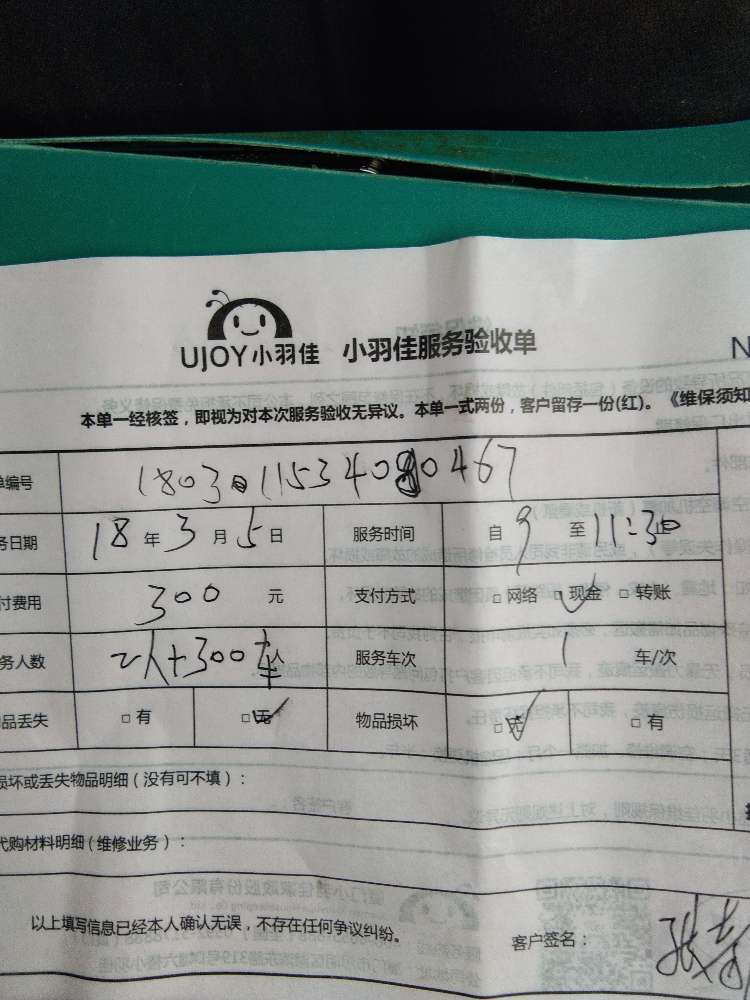 UJOY小羽佳 小羽佳服务验收单
N
本单一经核签，即视为对本次服务验收无异议。本单一式两份，客户留存一份(红)。《维保须知
单编号
务日期 18 年 3 月 5 日 服务时间 自 9 至 11:30
付费用 300 元 支付方式 □ 网络 □ 现金 □ 转账
务人数 2人+300 服务车次 1 车/次
品丢失 □ 有 □ 无 物品损坏 □ 无 □ 有
损坏或丢失物品明细（没有可不填）：
代购材料明细(维修业务)：
以上填写信息已经本人确认无误，不存在任何争议纠纷。 客户签名： 张